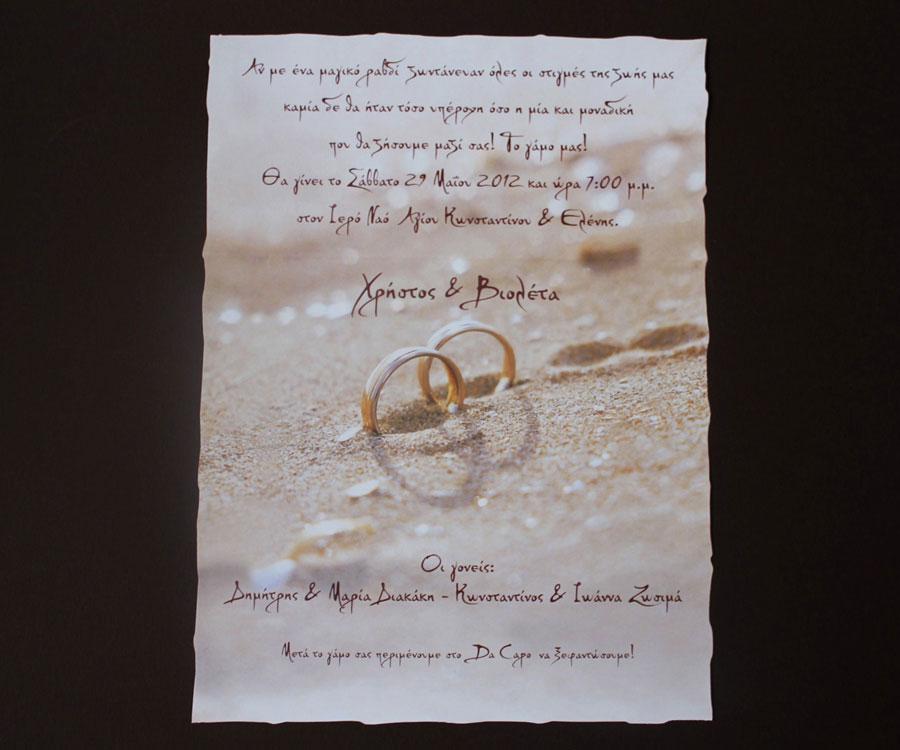 Αν με ένα μαγικό ραβδί ζωντάνευαν όλες οι στιγμές της ζωής μας
καμία δε θα ήταν τόσο υπέροχη όσο η μία και μοναδική
που θα ζήσουμε μαζί σας! Το γάμο μας!
Θα γίνει το Σάββατο 29 Μαΐου 2012 και ώρα 7:00 μ.μ.
στον Ιερό Ναό Αγίου Κωνσταντίνου & Ελένης.
Χρήστος & Βιολέτα
Οι γονείς:
Δημήτρης & Μαρία Διακάκη - Κωνσταντίνος & Ιωάννα Ζωσιμά
Μετά το γάμο σας περιμένουμε στο Da Capo να ξεφαντώσουμε!